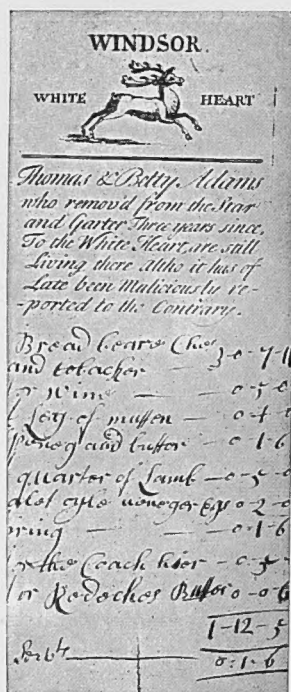 WINDSOR.
WHITE HEART
Thomas & Betty Adams
who remov'd from the Star
and Garter Three years since,
To the White Heart, are still
Living there altho it has of
Late been Maliciously re-
-ported to the Contrary.
Bread beare Chees
and tobacker — 0-7-11
for Wine — 0-5-0
Leg of mutten — 0-4-0
and butter — 0-1-6
quarter of Lamb — 0-5-0
oyle veneger Egs 0-2-0
— — 0-1-6
for the Coach hier — 0-5-
for Redoches Butter 0-0-6
1-12-5
Servts 0-1-6